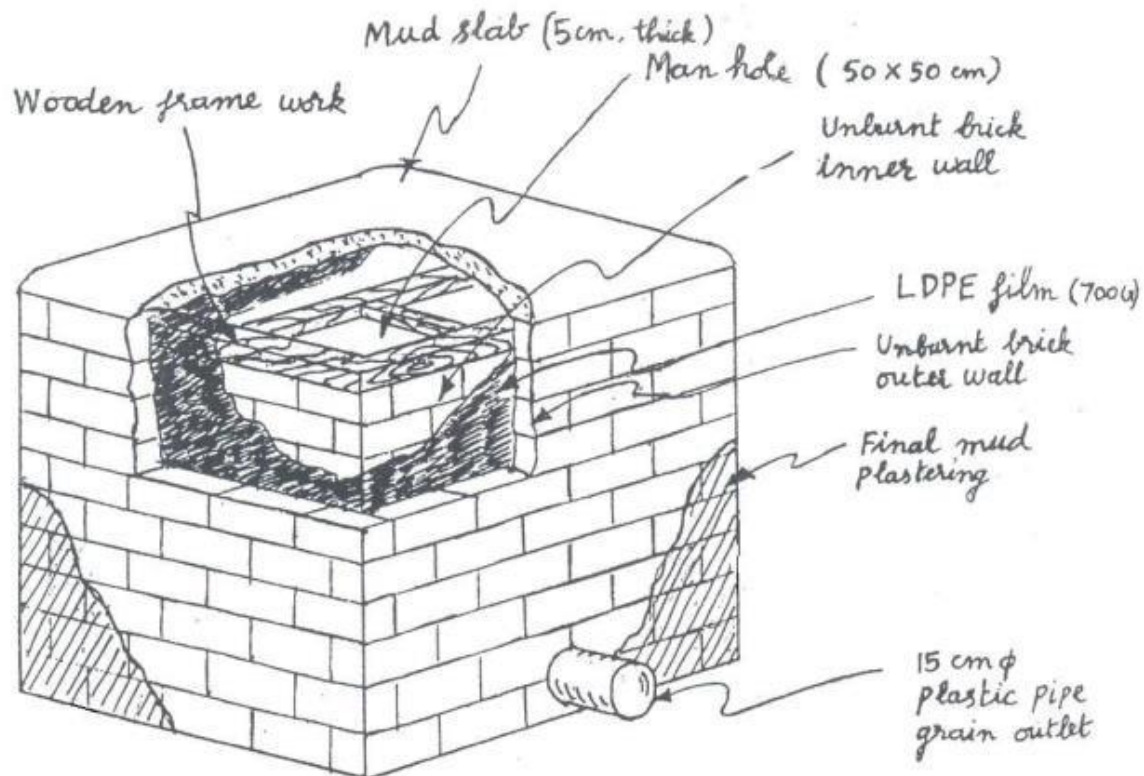 Mud slab (5cm. thick)
Man hole ( 50 x 50 cm)
Wooden frame work
Unburnt brick
inner wall
LDPE film (700G)
Unburnt brick
outer wall
Final mud
plastering
15 cm ϕ
plastic pipe
grain outlet